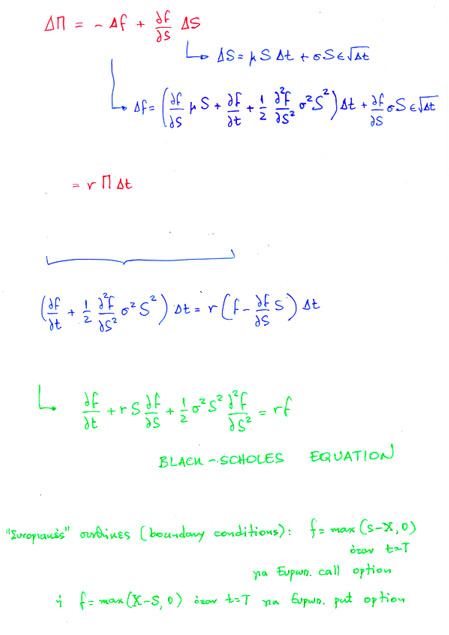 ΔΠ = - Δf + ∂f/∂S ΔS
ΔS = μ S Δt + σ S ε √Δt
Δf = (∂f/∂S μ S + ∂f/∂t + 1/2 ∂²f/∂S² σ² S²) Δt + ∂f/∂S σ S ε √Δt
= r Π Δt
(∂f/∂t + 1/2 ∂²f/∂S² σ² S²) Δt = r (f - ∂f/∂S S) Δt
∂f/∂t + r S ∂f/∂S + 1/2 σ² S² ∂²f/∂S² = r f
BLACK - SCHOLES EQUATION
"Συνοριακές" συνθήκες (boundary conditions): f = max (S-X, 0)
όταν t=T
για Ευρωπ. call option
ή f = max (X-S, 0) όταν t=T για Ευρωπ. put option